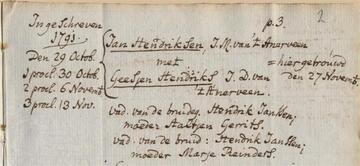 p.3. 2
Ingeschreven
1791.
Den 29 Octob.
1 procl. 30 Octob.
2 procl. 6 Novemb.
3 procl. 13 Nov.
Jan Hendriksen J.M. van 't Anerveen
met
Geesjen Hendriks J.D. van
't Anerveen.
= hier getrouwd
den 27 Novemb.
vad. van de bruideg. Hendrik Janssen;
moeder Gerrits.
vad. van de bruid: Hendrik Janssen;
moeder Marje Reinders.